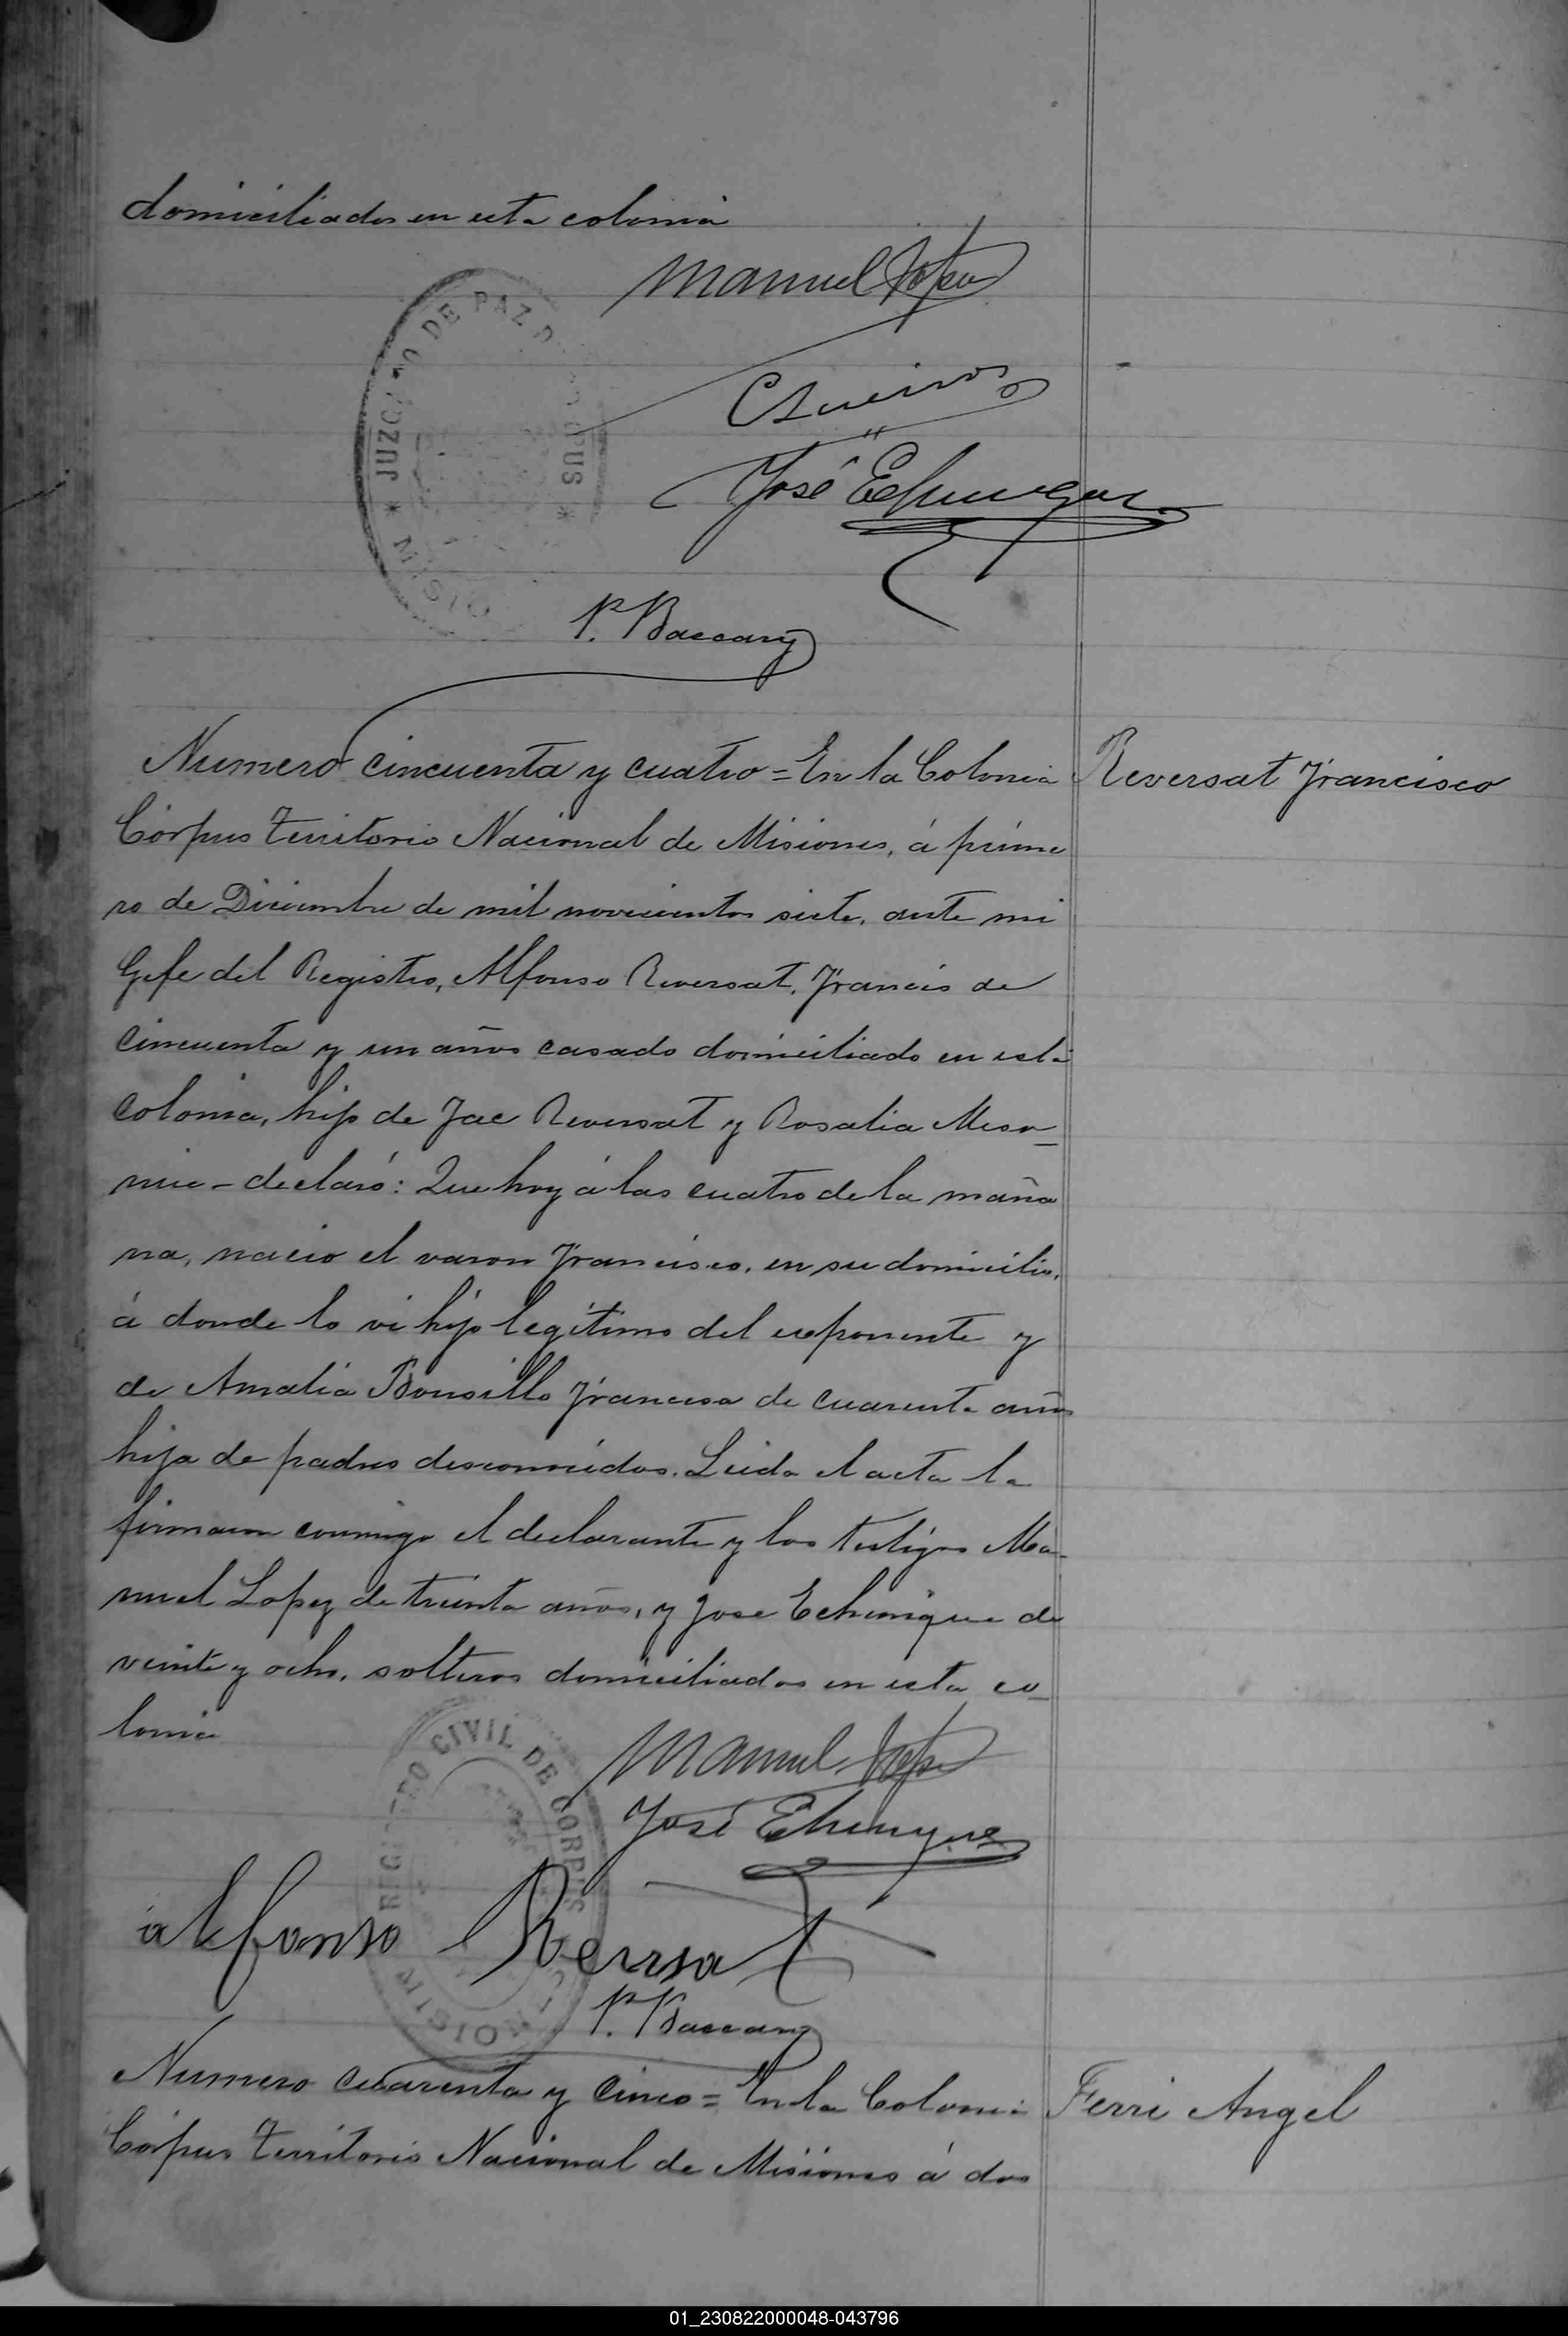 domiciliados en esta colonia
Manuel Lopez
José Echenique
P. Baccary
JUZGADO DE PAZ D CORPUS * MISIO *
Numero cincuenta y cuatro = En la Colonia
Reversat Francisco
Córpus Territorio Nacional de Misiones, á prime
ro de Diciembre de mil novecientos siete, ante mi
Gefe del Registro, Alfonso Reversat, Francés de
cincuenta y un años casado domiciliado en esta
colonia, hijo de Jac Reversat y Rosalia Meso-
nie - declaró: Que hoy á las cuatro de la maña
na, nacio el varon Francisco, en su domicilio,
á donde lo vi hijo legítimo del exponente y
de Amalia Bousillo Francesa de cuarenta años
hija de padres desconocidos. Leida el acta la
firmaron conmigo el declarante y los testigos Ma-
nuel Lopez de treinta años, y Jose Echenique de
veinte y ocho, solteros domiciliados en esta co_
lonia
REGISTRO CIVIL DE CORPUS MISIONES
Manuel Lopez
José Echenique
alfonso Reversat
P. Baccary
Numero cuarenta y cinco = En la Colonia
Ferri Angel
Córpus Territorio Nacional de Misiones á dos
01_230822000048-043796